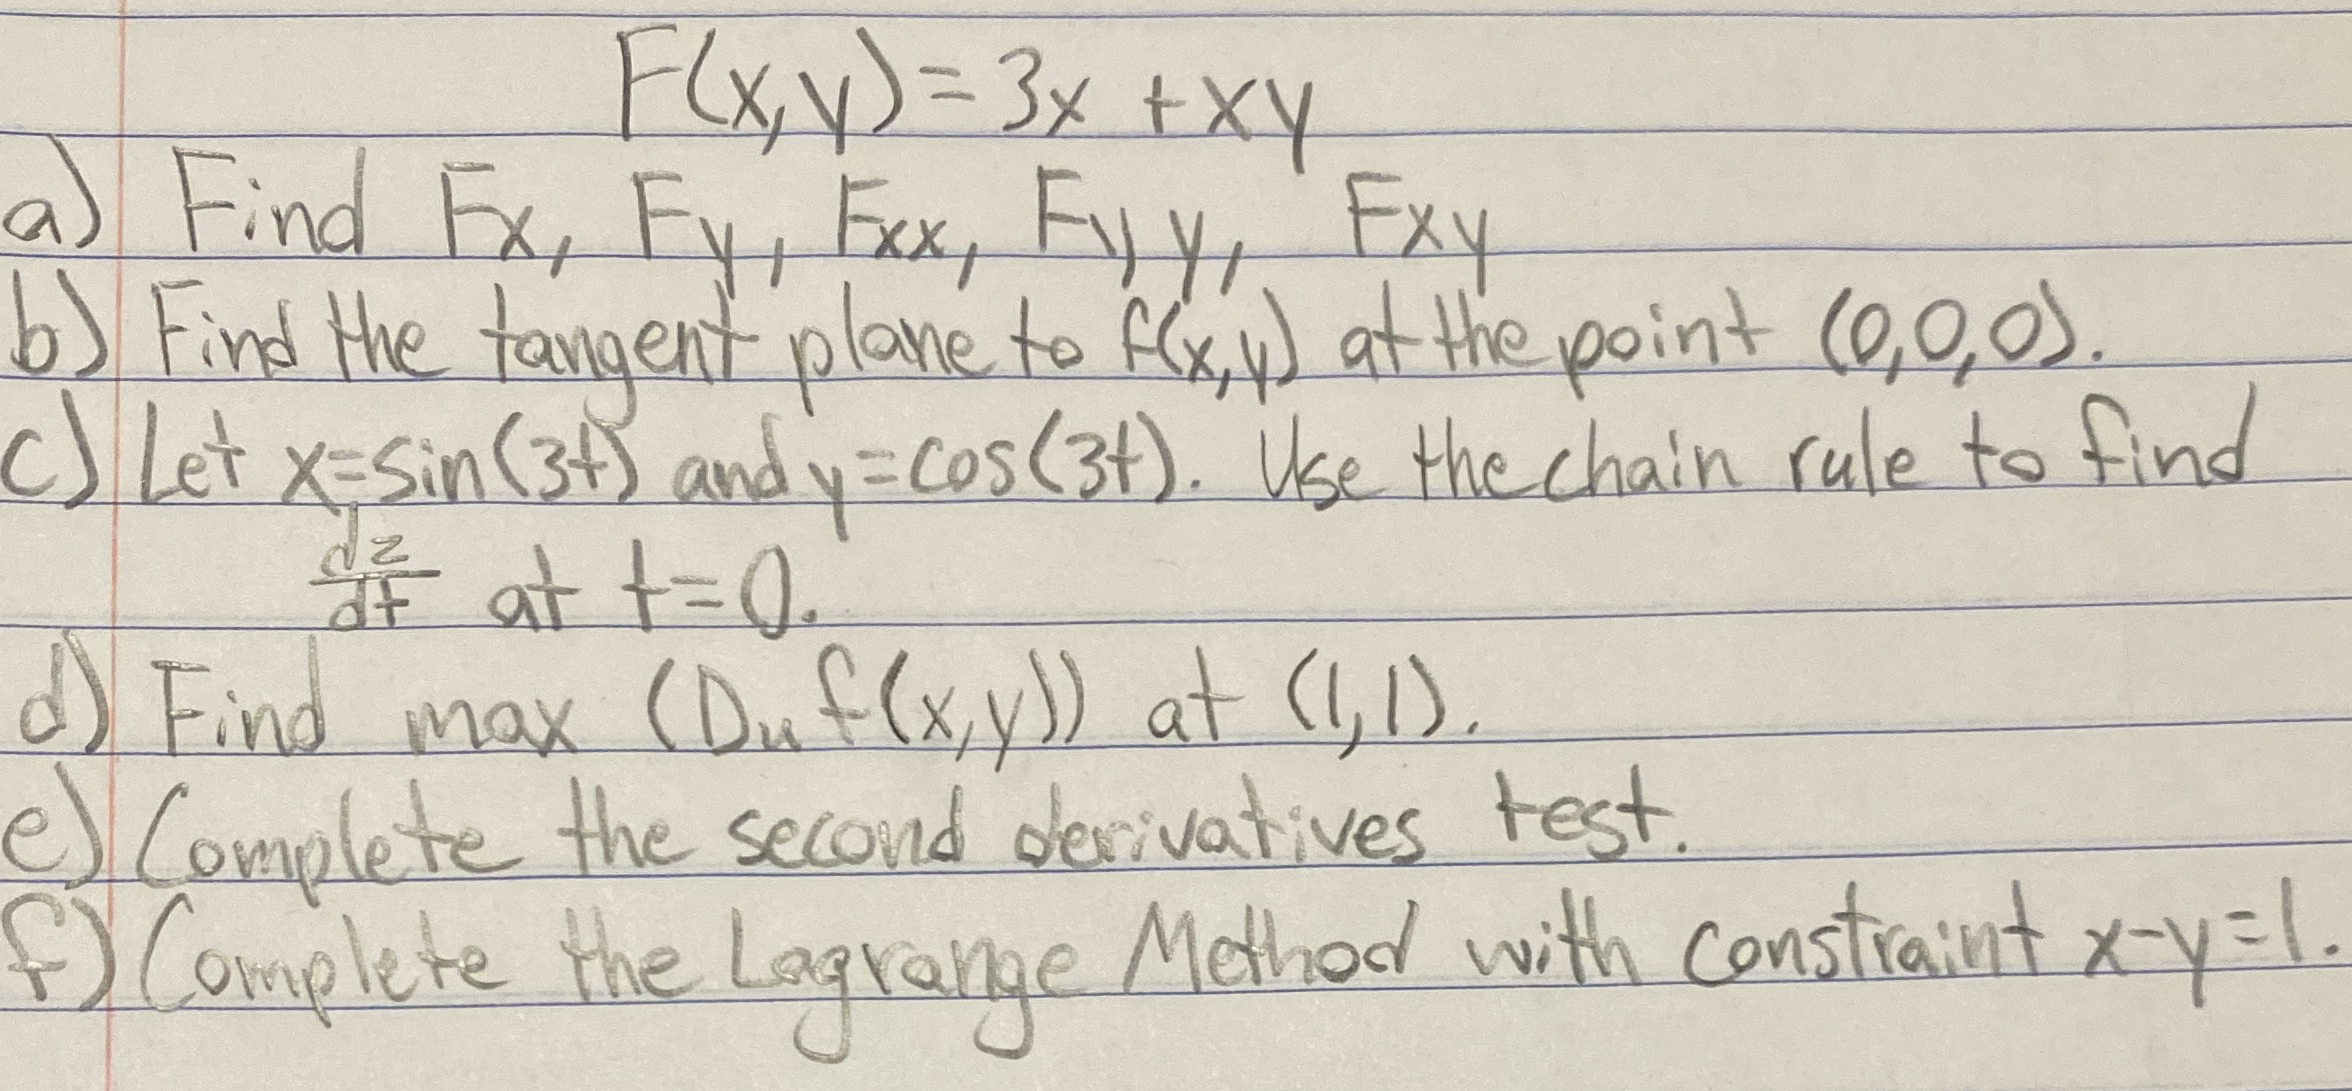 F(x,y)=3x+xy
a) Find Fx, Fy, Fxx, Fyy, Fxy
b) Find the tangent plane to f(x,y) at the point (0,0,0).
c) Let x=sin(3t) and y=cos(3t). Use the chain rule to find
dz/dt at t=0.
d) Find max (Du f(x,y)) at (1,1).
e) Complete the second derivatives test.
f) Complete the Lagrange Method with constraint x-y=1.